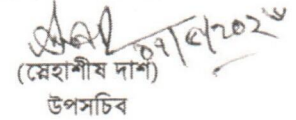 ০৭/৫/২০২৬
(স্নেহাশীষ দাশ)
উপসচিব